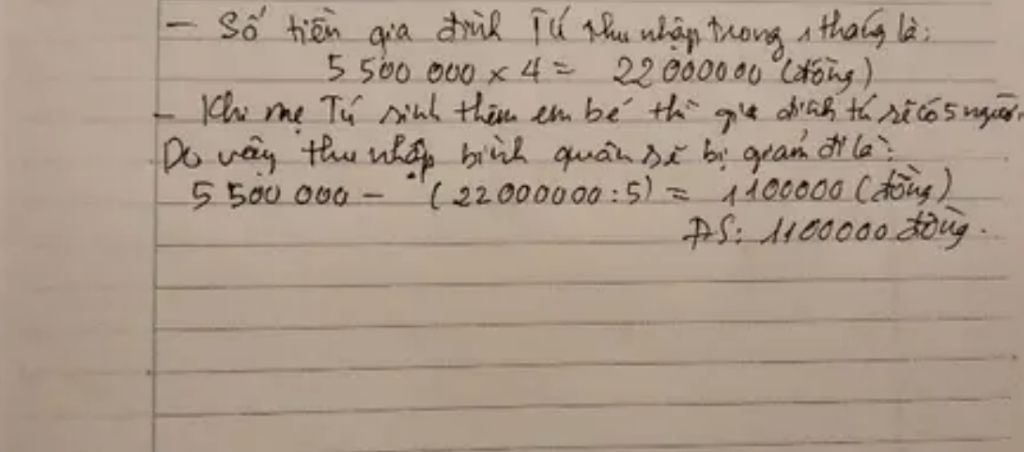 - Số tiền gia đình Tú thu nhập trong 1 tháng là:
5 500 000 x 4 = 22 000000 (đồng)
- Khi mẹ Tú sinh thêm em bé thì gia đình tú sẽ có 5 người.
Do vậy thu nhập bình quân sẽ bị giảm đi là:
5 500 000 - (22 000000 : 5) = 1100000 (đồng)
ĐS: 1100000 đồng.